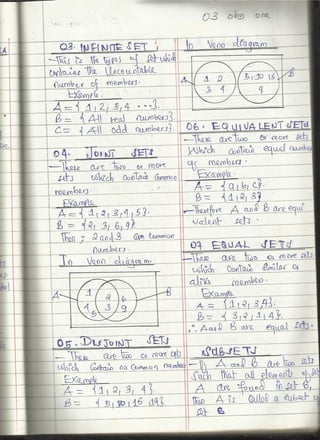 03 obg one
03. INFINITE SET :
- This is the types of set which
contains the Uncountable
number of members.
Example.
A = { 1, 2, 3, 4 ....}.
B = { All real numbers}
C = { All odd numbers}.
04. JOINT SETS
- There are two or more
sets which contain Common
members.
Example
A = { 1, 2, 3, 4, 5}.
B = { 2, 3, 6, 9}
Then ; 2 and 3 are common
numbers.
In Venn diagram.
A
B
1
4
5
2
3
6
9
05. DISJOINT SETS
- There are two or more sets
which Contain no Common member
Example
A = { 1, 2, 3, 4}
B = { 5, 10, 15, 9}
In Venn diagram
A
B
1 2
3 4
5, 10 15
9
06. EQUIVALENT SETS
- There are two or more sets
Which Contain equal number
of members.
Example.
A = { a, b, c}.
B = { 1, 2, 3}
- Therefore A and B are equi
valent sets.
07 EQUAL SETS
- These are two or more sets
which Contain similar or
alike member.
Example
A = { 1, 2, 3, 4}.
B = { 3, 2, 1, 4}.
∴ A and B are equal sets.
SUBSETS
- If A and B are two sets
Such that all elements of set
A are found in set B,
then A is Called a subset of
set B